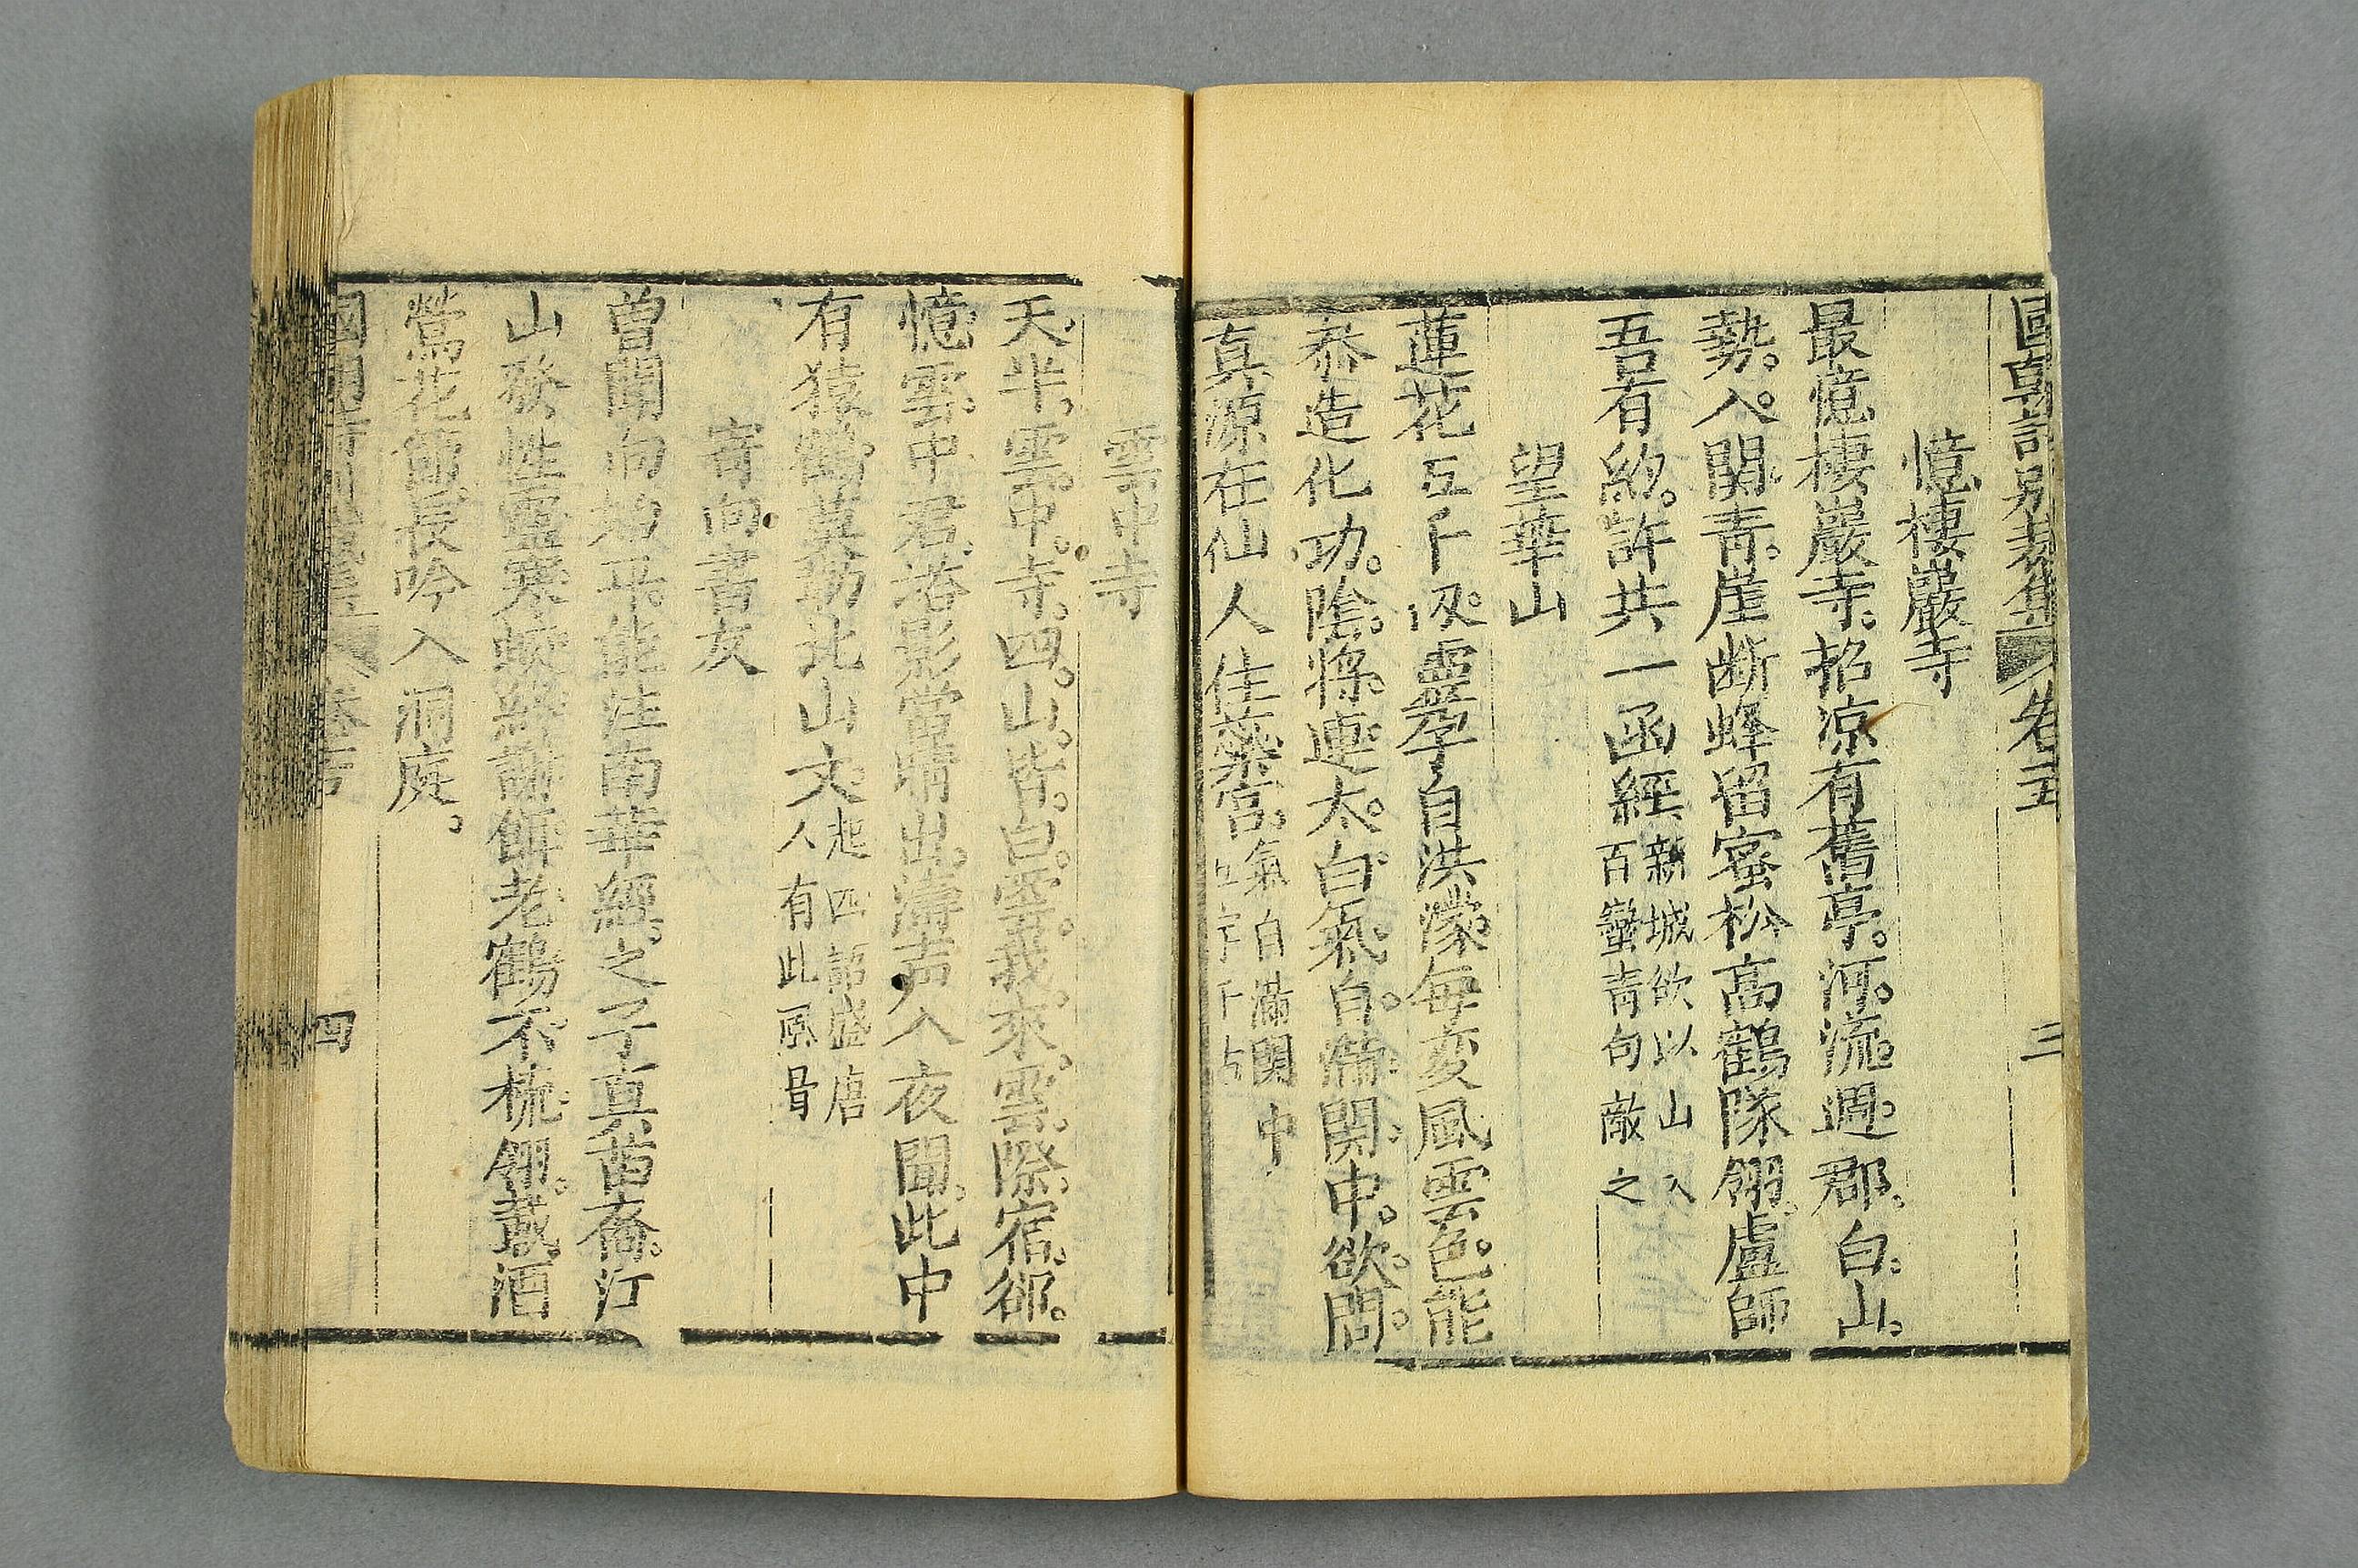 國朝詩別裁集 卷五 三
憶棲巖寺
最憶棲巖寺招凉有舊亭河流週郡白山
勢入関青崖断蜂留蜜松高鶴隊翎盧師
吾有約許共一函經新城欲以山入
百蠻青句敵之
望華山
蓮花五千仭靈孕自洪濛每変風雲色能
叅造化功陰將連太白氣自滿関中欲問
真源在仙人住蘂宮氣白滿関中
五字千古
雲中寺
天半雲中寺四山皆白雲我來雲際宿郤
憶雲中君塔影當晴出濤声入夜聞此中
有猿鶴莫勒北山文起四韶盛唐
人有此風骨
寄向書友
曾聞向始平能注南華經之子真苗裔江
山發性靈寒蛟終謝餌老鶴不梳翎蔵酒
鶯花節長吟入洞庭
四